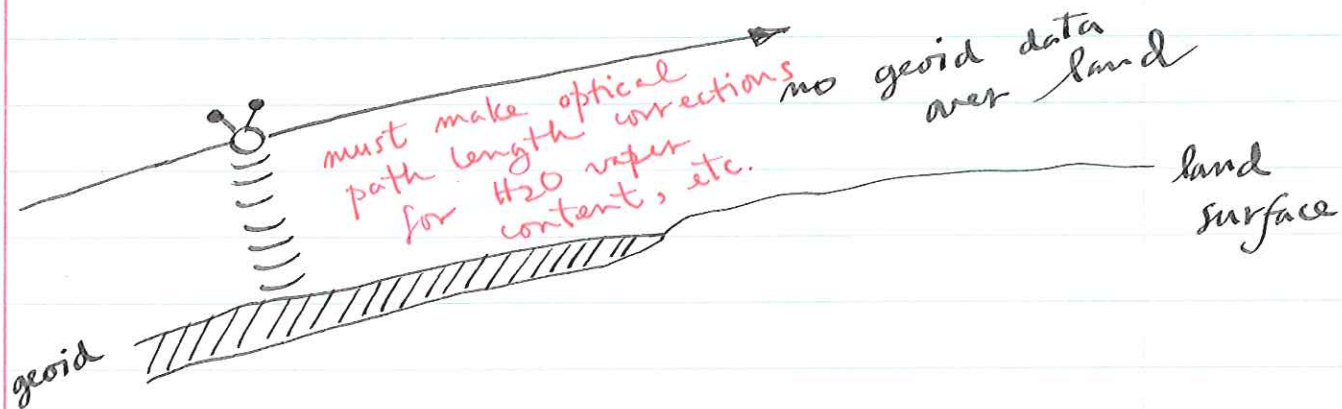 must make optical
path length corrections
for H2O vaper
content, etc.
no geoid data
over land
land
surface
geoid